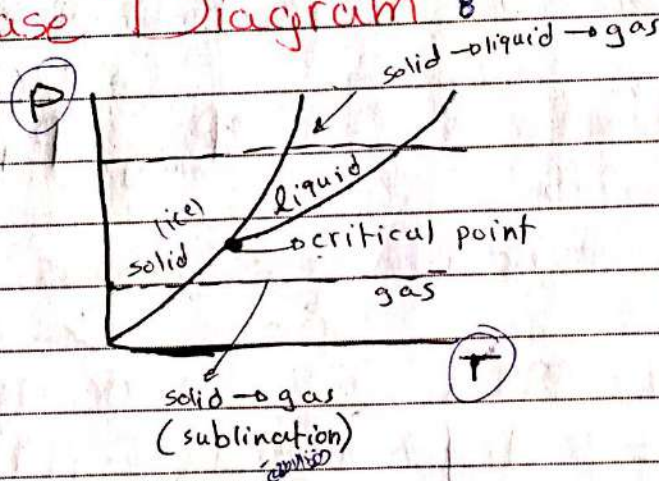 ase Diagram :
solid → liquid → gas
P
liquid
(ice)
solid
→ critical point
gas
T
solid → gas
(sublination)